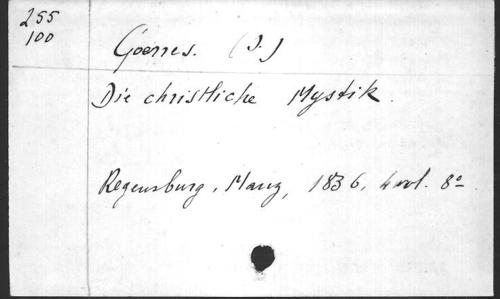 255
100
Goerres. (J.)
Die christliche Mystik.
Regensburg, Manz, 1836, 4 vol. 8º